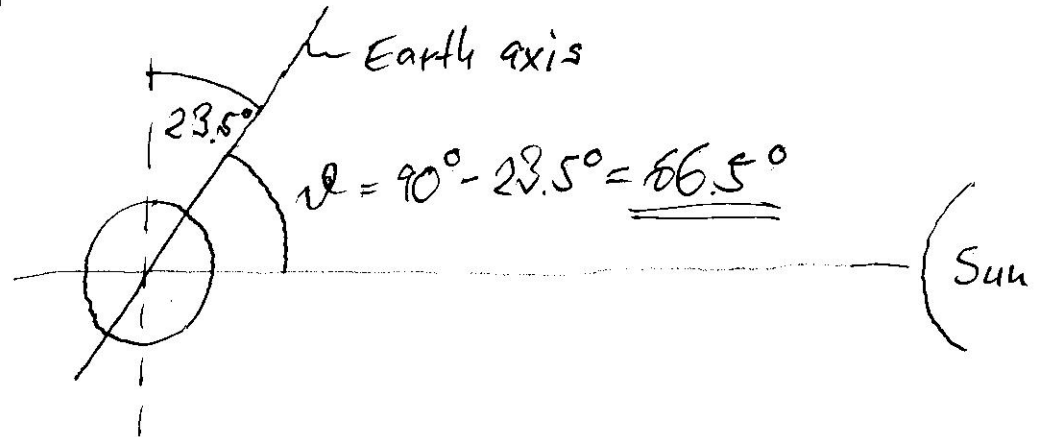 Earth axis
23.5°
ϑ = 90° - 23.5° = 66.5°
Sun